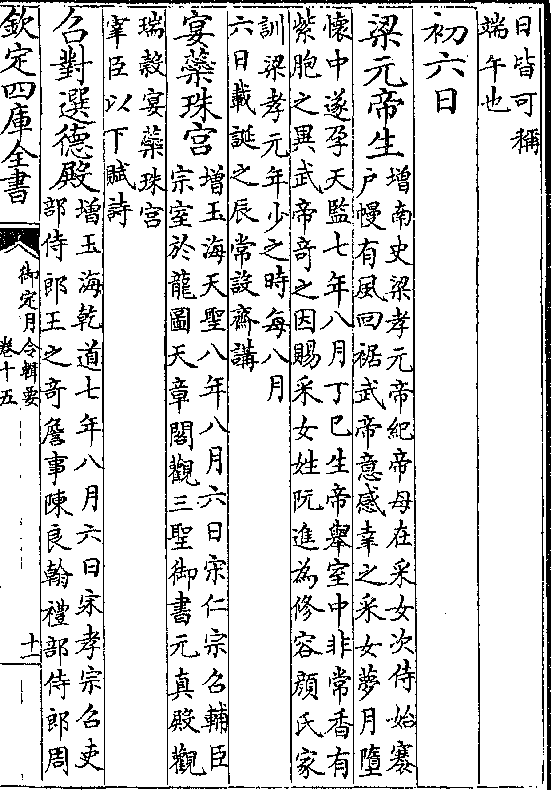 日皆可稱
端午也
初六日
梁元帝生
增南史梁孝元帝紀帝母在采女次侍始褰
户幔有風回裾武帝意感幸之采女夢月墮
懷中遂孕天監七年八月丁巳生帝舉室中非常香有
紫胞之異武帝奇之因賜采女姓阮進為修容顔氏家
訓梁孝元年少之時每八月
六日載誕之辰常設齋講
宴蘂珠宫
增玉海天聖八年八月六日宋仁宗召輔臣
宗室於龍圖天章閣觀三聖御書元真殿觀
瑞穀宴蘂珠宫
宰臣以下賦詩
召對選德殿
增玉海乾道七年八月六日宋孝宗召吏
部侍郎王之奇詹事陳良翰禮部侍郎周
欽定四庫全書
御定月令輯要
卷十五
十一